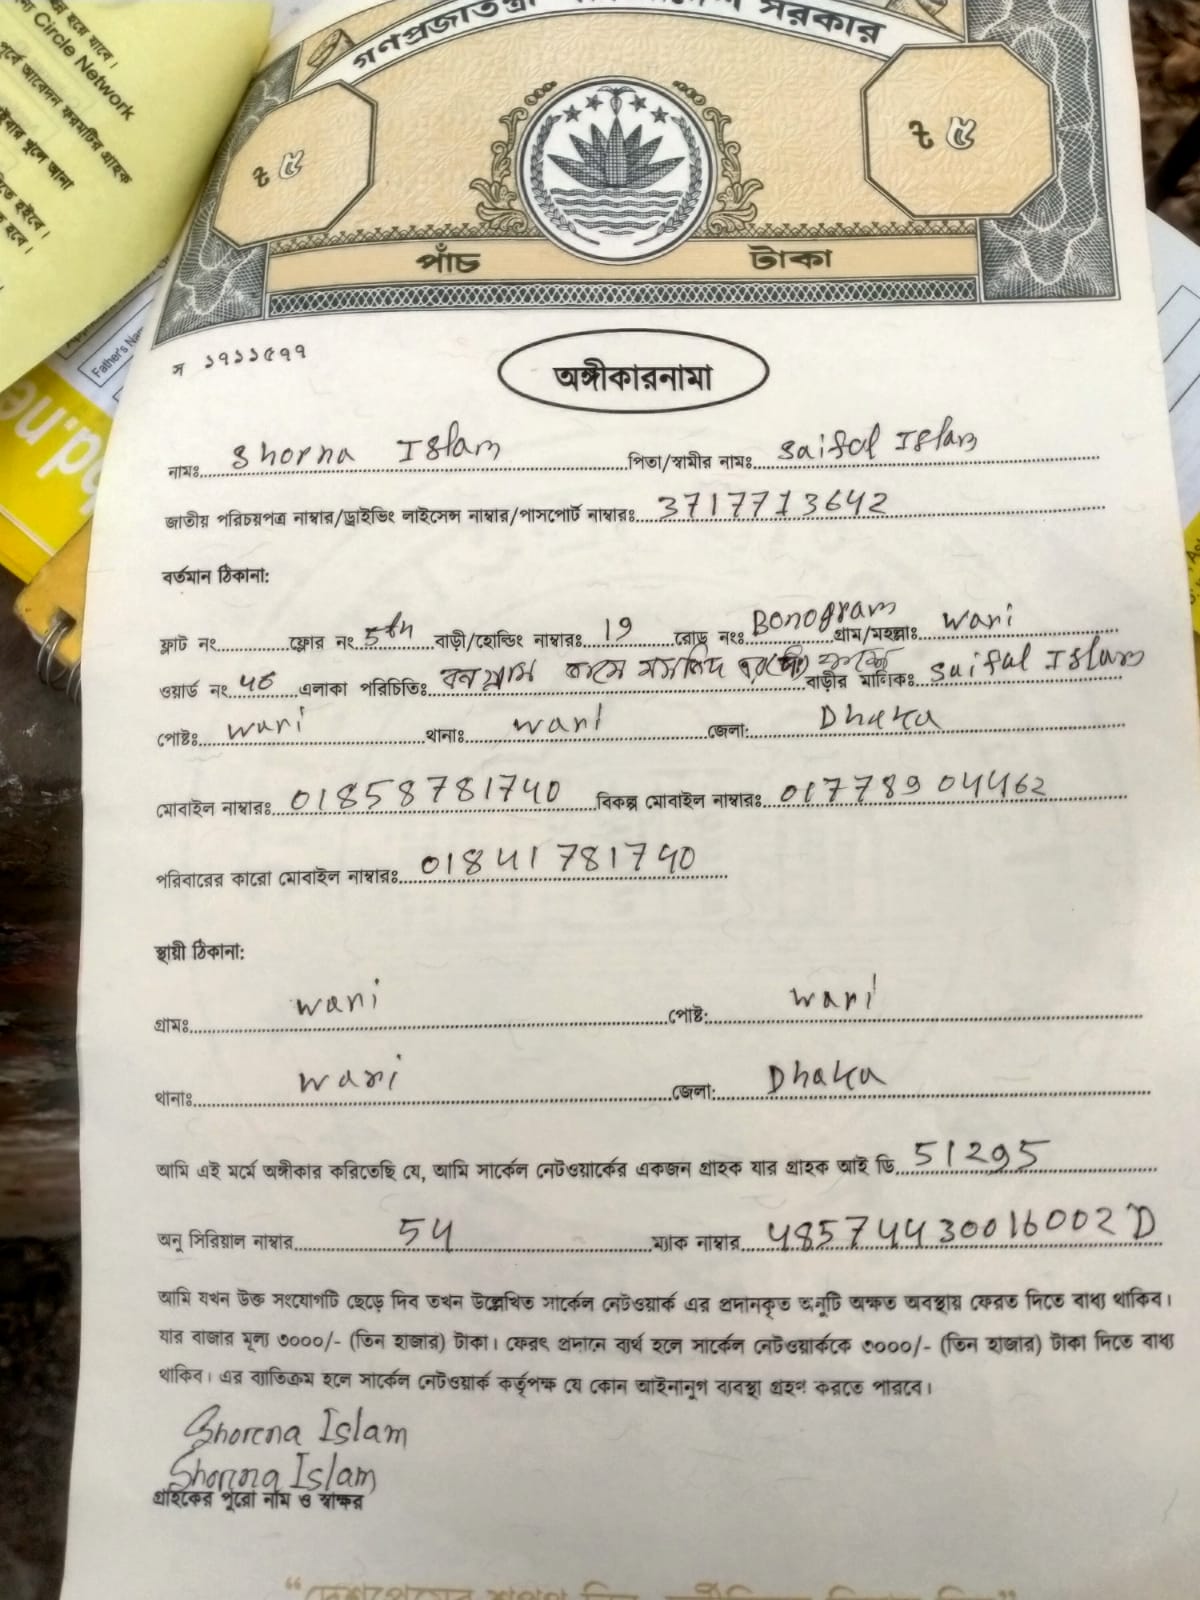 হয়ে যাবে।
Circle Network
পূর্বে আবেদন ফরমটির গ্রাহক
খুলে আনা
দিতে হইবে।
হবে।
Father's Nam
d.ne
গণপ্রজাতন্ত্রী সরকার
৳ ৫
৳ ৫
পাঁচ টাকা
স ১৭১১৫৭৭
অঙ্গীকারনামা
নামঃ Shorna Islam পিতা/স্বামীর নামঃ Saiful Islam
জাতীয় পরিচয়পত্র নাম্বার/ড্রাইভিং লাইসেন্স নাম্বার/পাসপোর্ট নাম্বারঃ 3717713642
বর্তমান ঠিকানা:
ফ্লাট নং ফ্লোর নং 5th বাড়ী/হোল্ডিং নাম্বারঃ 19 রোড নংঃ Bonogram গ্রাম/মহল্লাঃ wari
ওয়ার্ড নং এলাকা পরিচিতিঃ বনগ্রাম মসজিদ বাড়ীর মালিকঃ Saiful Islam
পোষ্টঃ wari থানাঃ wari জেলা: Dhaka
মোবাইল নাম্বারঃ 01858781740 বিকল্প মোবাইল নাম্বারঃ 01778904462
পরিবারের কারো মোবাইল নাম্বারঃ 01841781740
স্থায়ী ঠিকানা:
গ্রামঃ wari পোষ্ট: wari
থানাঃ wari জেলা: Dhaka
আমি এই মর্মে অঙ্গীকার করিতেছি যে, আমি সার্কেল নেটওয়ার্কের একজন গ্রাহক যার গ্রাহক আই ডি 51295
অনু সিরিয়াল নাম্বার 54 ম্যাক নাম্বার 485744430016002D
আমি যখন উক্ত সংযোগটি ছেড়ে দিব তখন উল্লেখিত সার্কেল নেটওয়ার্ক এর প্রদানকৃত অনুটি অক্ষত অবস্থায় ফেরত দিতে বাধ্য থাকিব।
যার বাজার মূল্য ৩০০০/- (তিন হাজার) টাকা। ফেরৎ প্রদানে ব্যর্থ হলে সার্কেল নেটওয়ার্ককে ৩০০০/- (তিন হাজার) টাকা দিতে বাধ্য
থাকিব। এর ব্যতিক্রম হলে সার্কেল নেটওয়ার্ক কর্তৃপক্ষ যে কোন আইনানুগ ব্যবস্থা গ্রহণ করতে পারবে।
Shorna Islam
Shorna Islam
গ্রাহকের পুরো নাম ও স্বাক্ষর